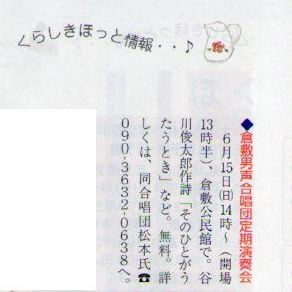 くらしきほっと情報・・♪
◆倉敷男声合唱団定期演奏会
6月15日(日)14時～（開場
13時半）、倉敷公民館で。谷
川俊太郎作詩「そのひとがう
たうとき」など。無料。詳
しくは、同合唱団松本氏☎
090-3632-0638へ。